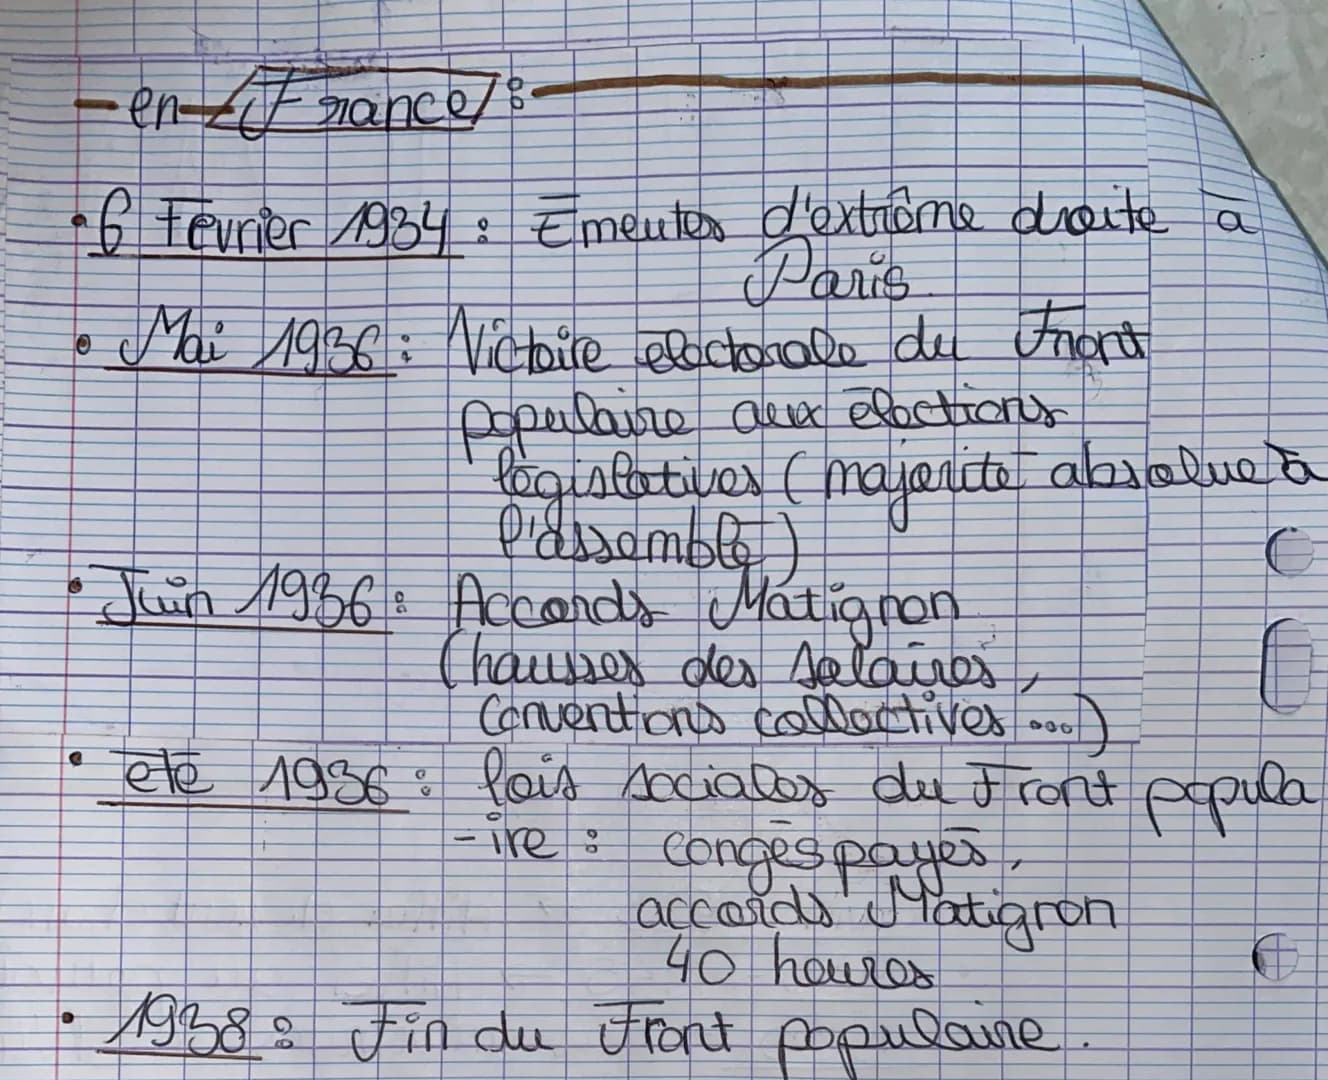 - en France :
• 6 Février 1934 : Emeutes d'extrême droite à
Paris
• Mai 1936 : Victoire electorale du Front
populaire aux élections
législatives (majorité absolue à
l'assemblé)
• Juin 1936 : Accords Matignon
(hausses des salaires,
conventions collectives ...)
• été 1936 : lois sociales du Front popula
-ire : congés payés,
accords Matignon
40 heures
• 1938 : Fin du Front populaire.